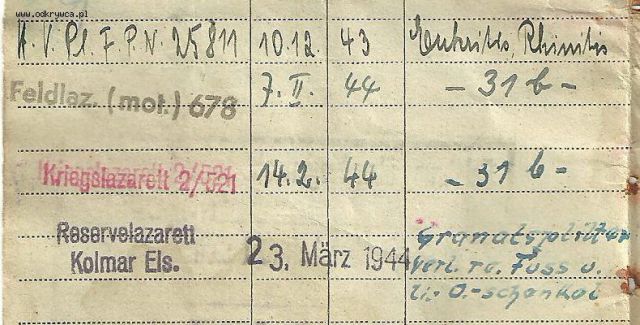 www.odkrywca.pl
H.V.Pl. F.P.N. 25811 10.12. 43 Enteritis, Rhinitis
Feldlaz. (mot.) 678 7. II. 44 - 31 b -
Kriegslazarett 2/521 14.2. 44 - 31 b -
Reservelazarett
Kolmar Els. 23. März 1944 Granatsplitter
verl. re. Fuss u.
li. O.-schenkel